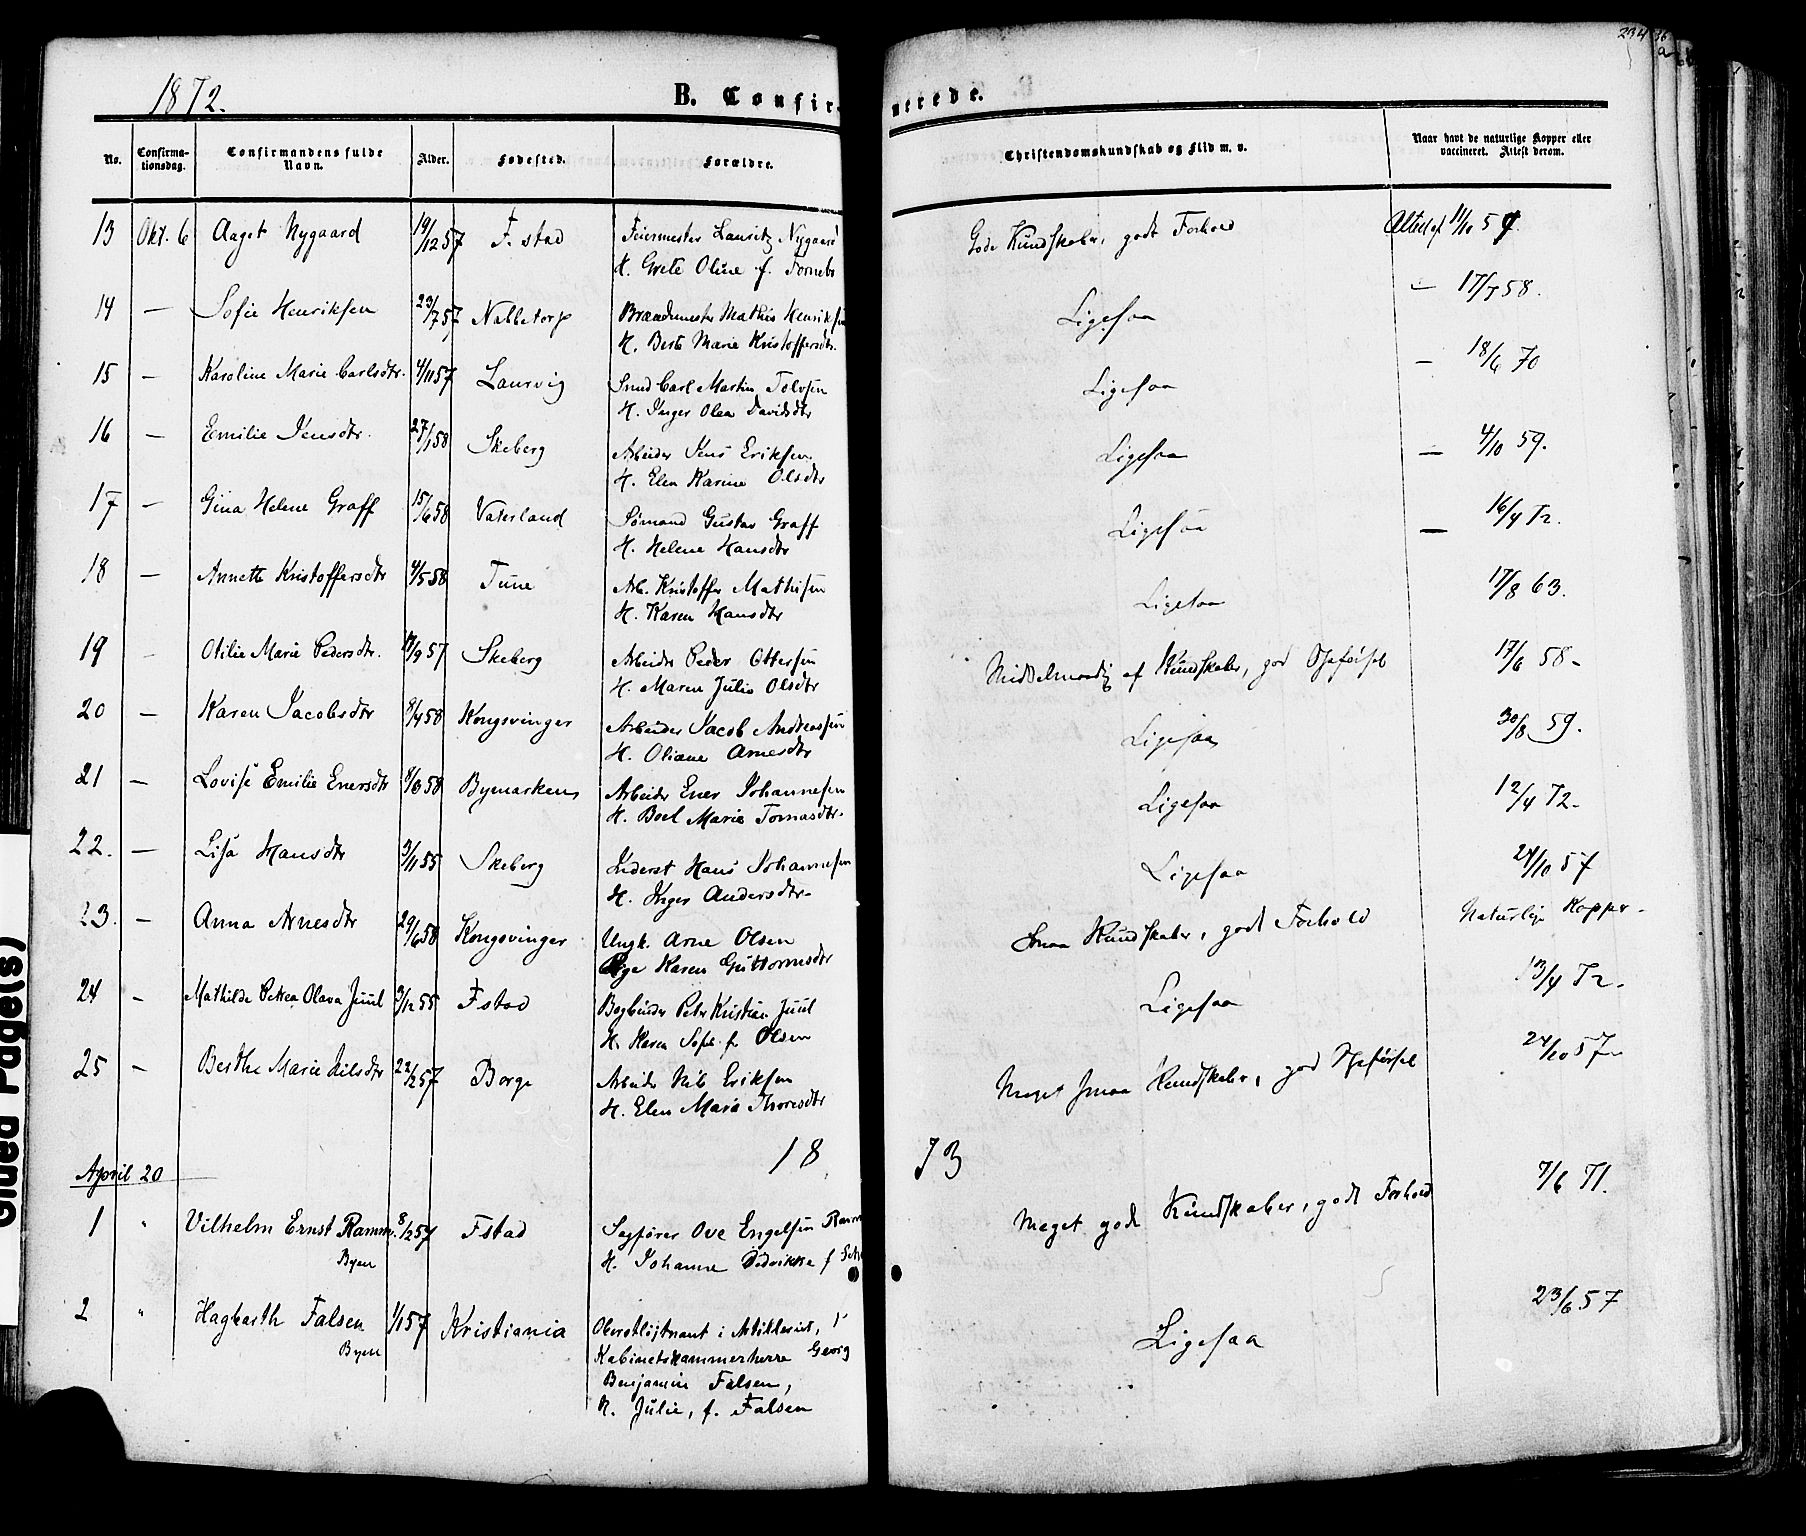 234
1872.
B. Confirmerede.
No.
Confirma-
tionsdag.
Confirmandens fulde
Navn.
Alder.
Fødested.
Forældre.
Christendomskundskab og Flid m. v.
Naar havt de naturlige Kopper eller
vaccineret. Attest derom.
13 Okt. 6 Aaget Nygaard 19/12 57 F.stad Feiermester Lauritz Nygaard Gode Kundskaber, godt Forhold Attest af 11/10 57.
H. Grete Oline f. Fornebr
14 — Sofie Henriksen 23/7 57 Nabbetorp Brandmester Mathis Henriksen Ligesaa — 17/7 58.
H. Berte Marie Kristoffersdtr.
15 — Karoline Marie Carlsdtr. 4/11 57 Laurvig Smed Carl Martin Tolvsen Ligesaa — 18/6 70
H. Inger Olea Davidsdtr
16 — Emilie Jensdtr. 27/1 58 Skeberg Arbeider Jens Eriksen. Ligesaa — 4/10 59.
H. Elen Karine Olsdtr
17 — Gina Helene Graff 15/6 58 Vaterland Sømand Gustav Graff Ligesaa — 16/4 72.
H. Helene Hansdtr
18 — Annette Kristoffersdtr 4/5 58 Tune Arb. Kristoffer Mathisen Ligesaa 17/8 63.
H. Karen Hansdtr
19 — Otilie Marie Pedersdtr. 17/9 57 Skeberg Arbeider Peder Ottersen Middelmaadig af Kundskaber, god Opførsel 17/6 58-
H. Maren Julie Olsdtr
20 — Karen Jacobsdtr 8/4 58 Kongsvinger Arbeider Jacob Andreassen Ligesaa 30/8 59.
H. Oliane Arnesdtr
21 — Lovise Emilie Enersdtr 8/6 58 Bymarken Arbeider Ener Johannesen Ligesaa 12/4 72-
H. Boel Marie Tomasdtr-
22. — Lisa Hansdtr 3/11 55 Skeberg Inderst Hans Johannesen Ligesaa 24/10 57
H. Inger Andersdtr-
23. — Anna Arnesdtr 29/6 58 Kongsvinger Ungk. Arne Olsen Smaa Kundskaber, godt Forhold Naturlige Kopper-
Pige Karen Guttormsdtr
24 — Mathilde Petrea Olava Juul 3/12 55 Fstad Bogbinder Peter Kristian Juul Ligesaa 13/4 72-
H. Karen Sofie f. Olsen
25 — Berthe Marie Nilsdtr 22/2 57 Borge Arbeider Nils Eriksen Meget smaa Kundskaber, god Opførsel 24/10 57-
H. Elen Marie Thoresdtr
1873
April 20
1 " Vilhelm Ernst Ramm. 8/12 57 Fstad Sagfører Ove Engelsen Ramm Meget gode Kundskaber, godt Forhold 7/6 71.
Byen H. Johanne Fredrikke f
2 " Hagbarth Falsen 1/1 57 Kristiania Oberstløjtnant i Artilleriet, Ligesaa 23/6 57
Byen Kabinetskammerherre Georg
Benjamin Falsen,
H. Julie, f. Falsen
Glued Page(s)